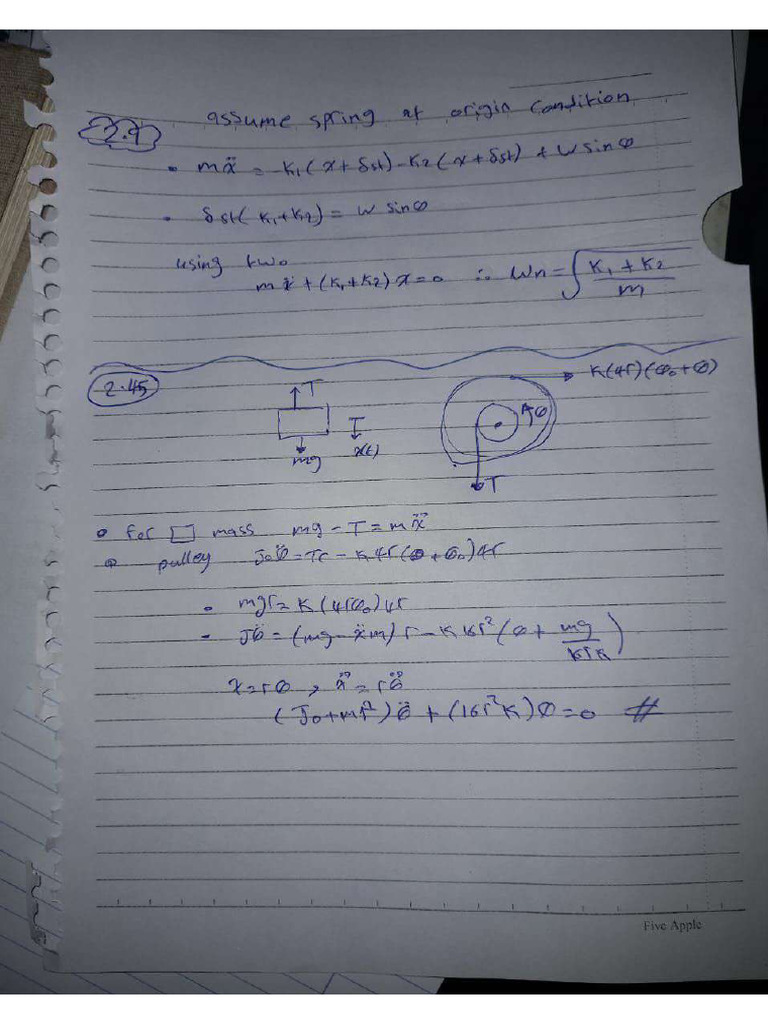 assume spring at origin condition
2.9
• mẍ = -K₁(x+δst)-K₂(x+δst) + W sinφ
• δst(K₁+K₂) = W sinφ
using two
mẍ+(K₁+K₂)x=0 ∴ Wn = √((K₁+K₂)/m)
2.45
T
mg
x(t)
K(4r)(θ₀+θ)
θ
T
• for □ mass mg - T = mẍ
• pulley J₀θ̈ = Tr - K4r(θ+θ₀)4r
• mgr = K(4rθ₀)4r
- Jθ̈ = (mg-ẍm)r - K16r²(θ+
x=rθ, ẍ=rθ̈
(J₀+mr²)θ̈ + (16r²K)θ=0 #
Five Apple